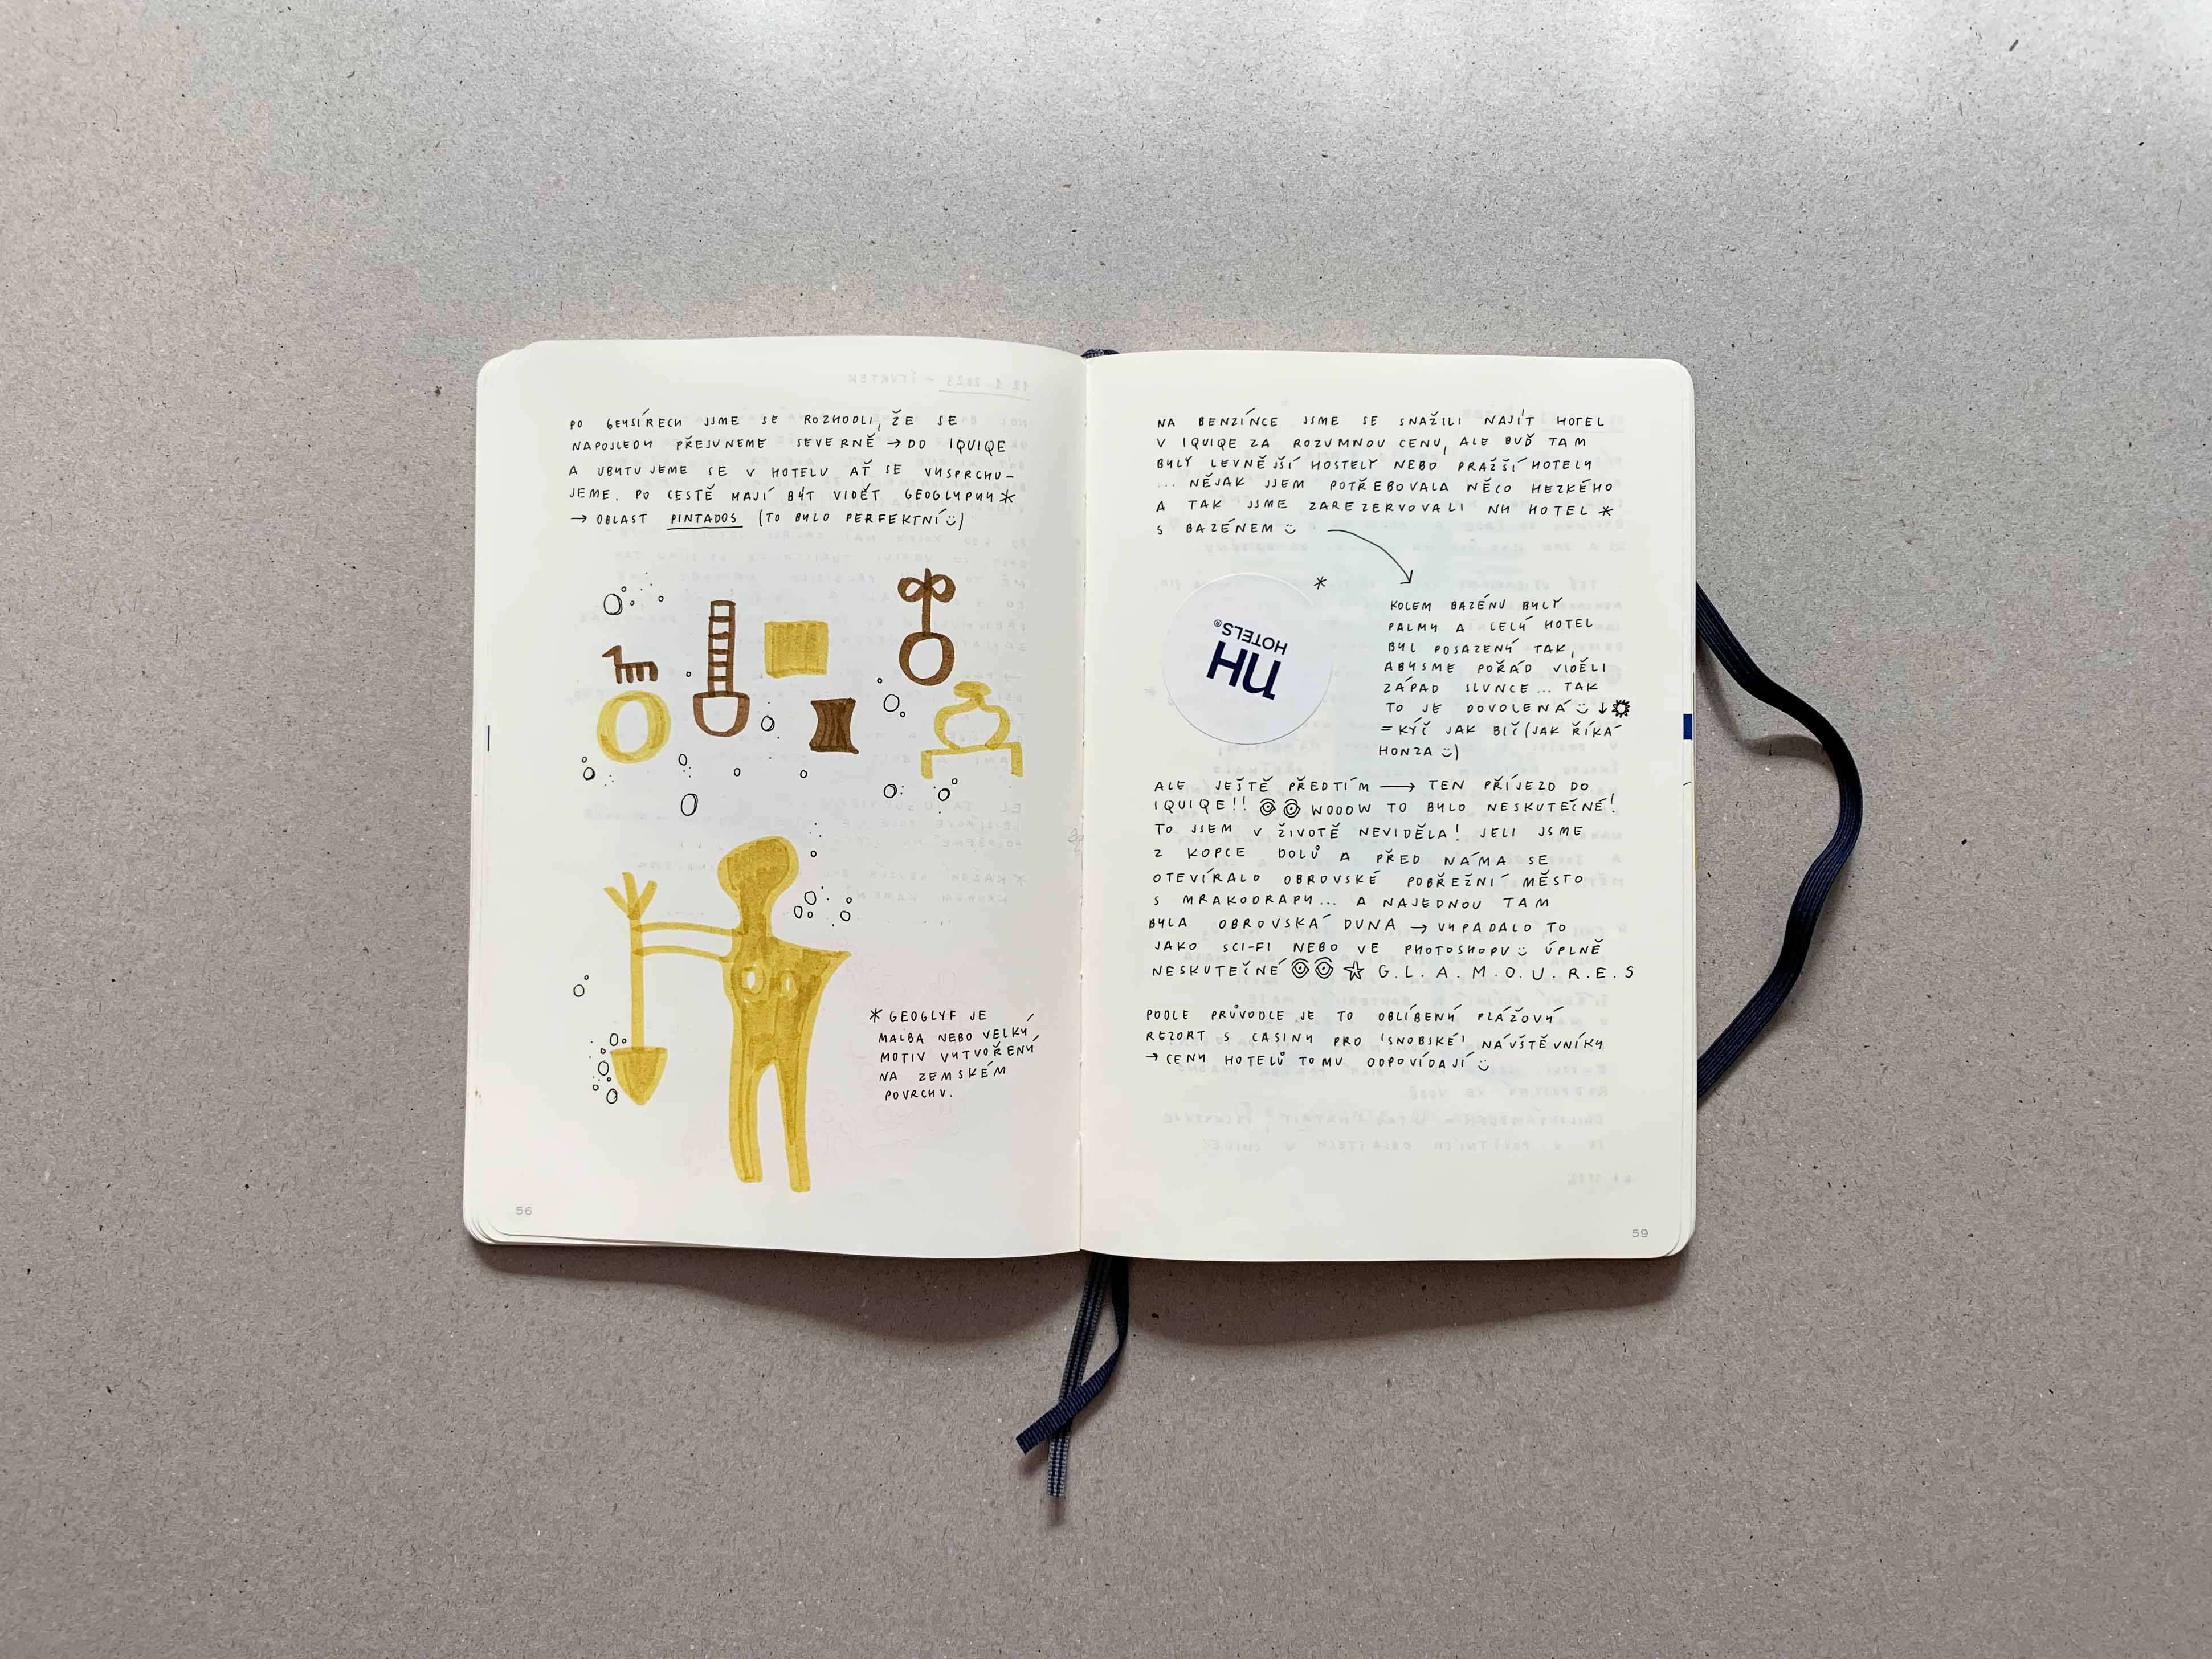 PO GEYSÍRECH JSME SE ROZHODLI, ŽE SE
NAPOSLEDY PŘEJUNEME SEVERNĚ → DO IQUIQE
A UBYTUJEME SE V HOTELU AŤ SE VYSPRCHU-
JEME. PO CESTĚ MAJÍ BÝT VIDĚT GEOGLYPHY *
→ OBLAST PINTADOS (TO BYLO PERFEKTNÍ)
* GEOGLYF JE
MALBA NEBO VELKÝ
MOTIV VYTVOŘENÝ
NA ZEMSKÉM
POVRCHU.
56
NA BENZÍNCE JSME SE SNAŽILI NAJÍT HOTEL
V IQUIQE ZA ROZUMNOU CENU, ALE BUĎ TAM
BYLY LEVNĚJŠÍ HOSTELY NEBO PRAŽŠÍ HOTELY
... NĚJAK JSEM POTŘEBOVALA NĚCO HEZKÉHO
A TAK JSME ZAREZERVOVALI NH HOTEL *
S BAZÉNEM
*
nH
HOTELS®
KOLEM BAZÉNU BYLY
PALMY A CELÝ HOTEL
BYL POSAZENÝ TAK,
ABYSME POŘÁD VIDĚLI
ZÁPAD SLUNCE... TAK
TO JE DOVOLENÁ ↓
= KÝČ JAK BIČ (JAK ŘÍKÁ
HONZA)
ALE JEŠTĚ PŘEDTÍM → TEN PŘÍJEZD DO
IQUIQE!! WOOOW TO BYLO NESKUTEČNÉ!
TO JSEM V ŽIVOTĚ NEVIDĚLA! JELI JSME
Z KOPCE DOLŮ A PŘED NÁMA SE
OTEVÍRALO OBROVSKÉ POBŘEŽNÍ MĚSTO
S MRAKODRAPY... A NAJEDNOU TAM
BYLA OBROVSKÁ DUNA → VYPADALO TO
JAKO SCI-FI NEBO VE PHOTOSHOPU ÚPLNĚ
NESKUTEČNÉ G.L.A.M.O.U.R.E.S
PODLE PRŮVODCE JE TO OBLÍBENÝ PLÁŽOVÝ
REZORT S CASINY PRO 'SNOBSKÉ' NÁVŠTĚVNÍKY
→ CENY HOTELŮ TOMU ODPOVÍDAJÍ
59